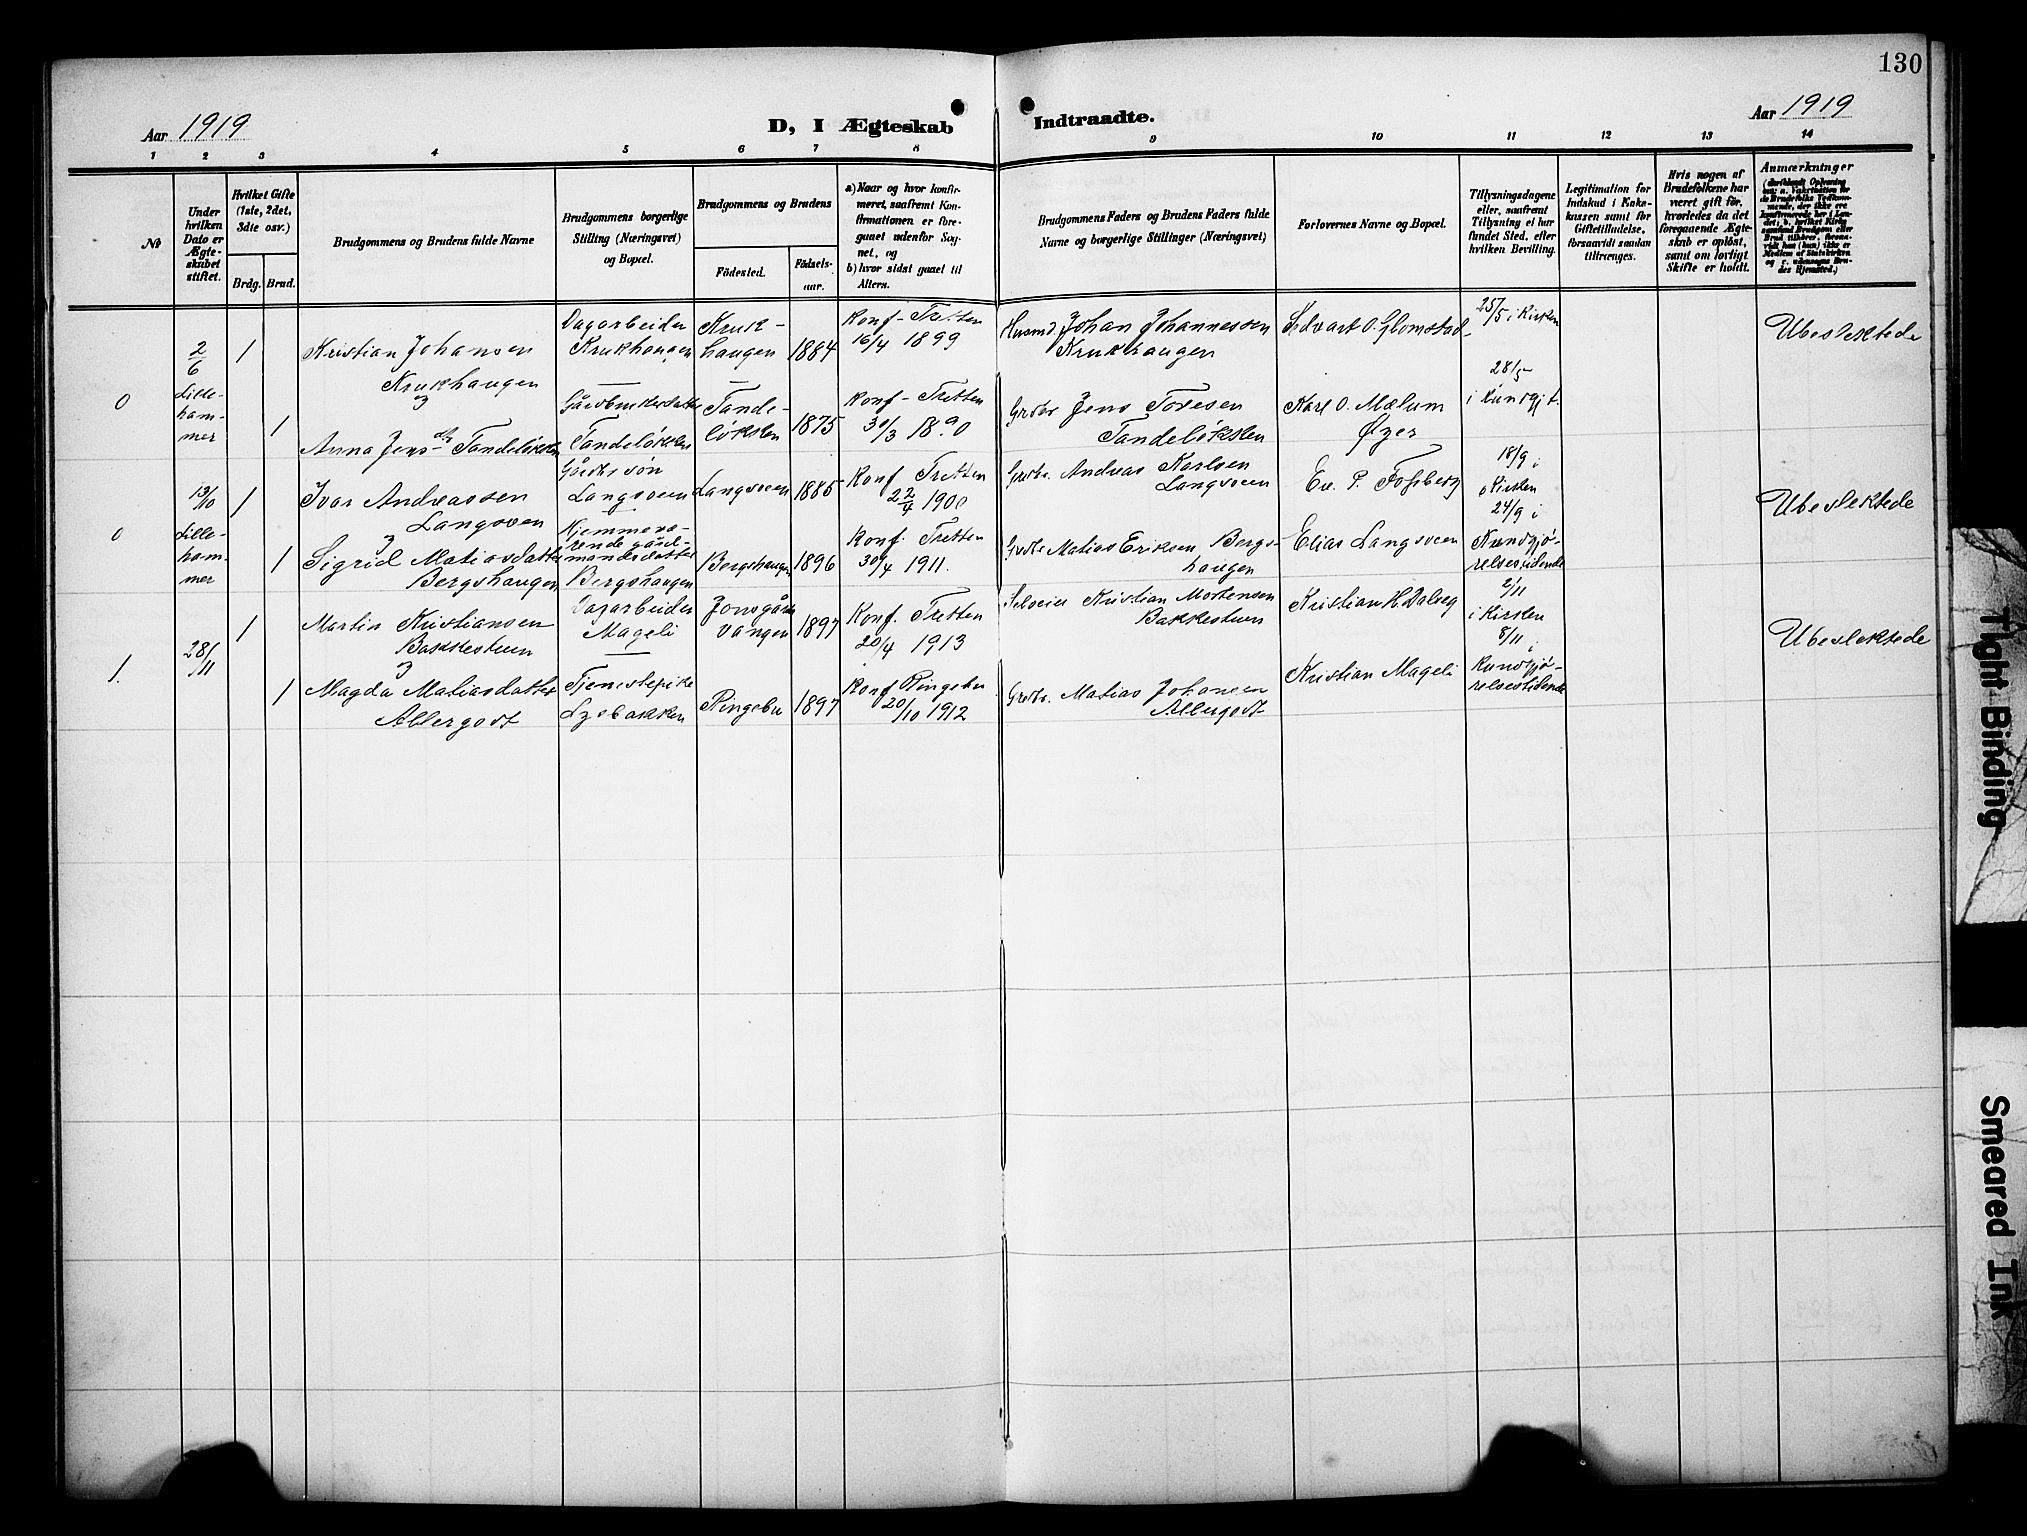 130
Aar 1919
D, I Ægteskab
Indtraadte.
Aar 1919
1 2 3 4 5 6 7 8 9 10 11 12 13 14
№
Under
hvilken
Dato er
Ægte-
skabet
stiftet.
Hvilket Gifte
(1ste, 2det,
3die osv.)
Brdg. Brud.
Brudgommens og Brudens fulde Navne
Brudgommens borgerlige
Stilling (Næringsvei)
og Bopæl.
Brudgommens og Brudens
Födested.
Födsels-
aar.
a) Naar og hvor konfir-
meret, saafremt Kon-
firmationen er fore-
gaaet udenfor Sog-
net, og
b) hvor sidst gaaet til
Alters.
Brudgommens Faders og Brudens Faders fulde
Navne og borgerlige Stillinger (Næringsvei)
Forlovernes Navne og Bopæl.
Tillysningsdagene
eller, saafremt
Tillysning ei har
fundet Sted, efter
hvilken Bevilling.
Legitimation for
Indskud i Enke-
kassen samt for
Giftetilladelse,
forsaavidt saadan
tiltrænges.
Hvis nogen af
Brudefolkene har
været gift før,
hvorledes da det
foregaaende Ægte-
skab er oplöst,
samt om lovligt
Skifte er holdt.
Anmærkninger
0
2/6
Lille-
ham-
mer
1
Kristian Johansen
Krukhaugen
Dagarbeider
Krukhaugen
Kruk-
haugen
1884
Konf- Tretten
16/4 1899
Husmd Johan Johannessen
Krukhaugen
Sedvart O. Glomstad
25/5 i Kirken
Ubeslektede
1
Anna Jensdtr Tandeløkken
Gårdbrukerdatter
Tandeløkken
Tande-
løkken
1875
Konf- Tretten
30/3 1890
Grdbr Jens Toresen
Tandeløkken
Karl O. Mælum
Øyer
28/5
i Kundgjt.
0
13/10
Lille-
ham-
mer
1
Ivar Andreassen
Langsveen
Gårdbr søn
Langsveen
Langsveen
1885
Konf Tretten
22/4 1900
Grdbr. Andreas Karlsen
Langsveen
Ev. P. Fossberg
18/9 i
Kirken
Ubeslektede
1
Sigrid Matiasdatter
Bergshaugen
Hjemmevæ-
rende gård-
mandsdatter
Bergshaugen
Bergshaugen
1896
Konf. Tretten
30/4 1911.
Grdbr Matias Eriksen Bergs-
haugen
Elias Langsveen
24/9 i
Kundgjø-
relsestidende
1.
28/11
1
Martin Kristiansen
Bakkestuen
Dagarbeider
Mageli
Jonsgård
vangen
1897
Konf. Tretten
20/4 1913
Selveier Kristian Mortensen
Bakkestuen
Kristian H. Dalseg
2/11
i Kirken
Ubeslektede
1
Magda Matiasdatter
Allergodt
Tjenestepike
Lysbakken
Ringebu
1897
Konf Ringebu
20/10 1912
Grdbr. Matias Johansen
Allergodt
Kristian Mageli
8/11 i
Kundgjø-
relsestidende
Tight Binding
Smeared Ink